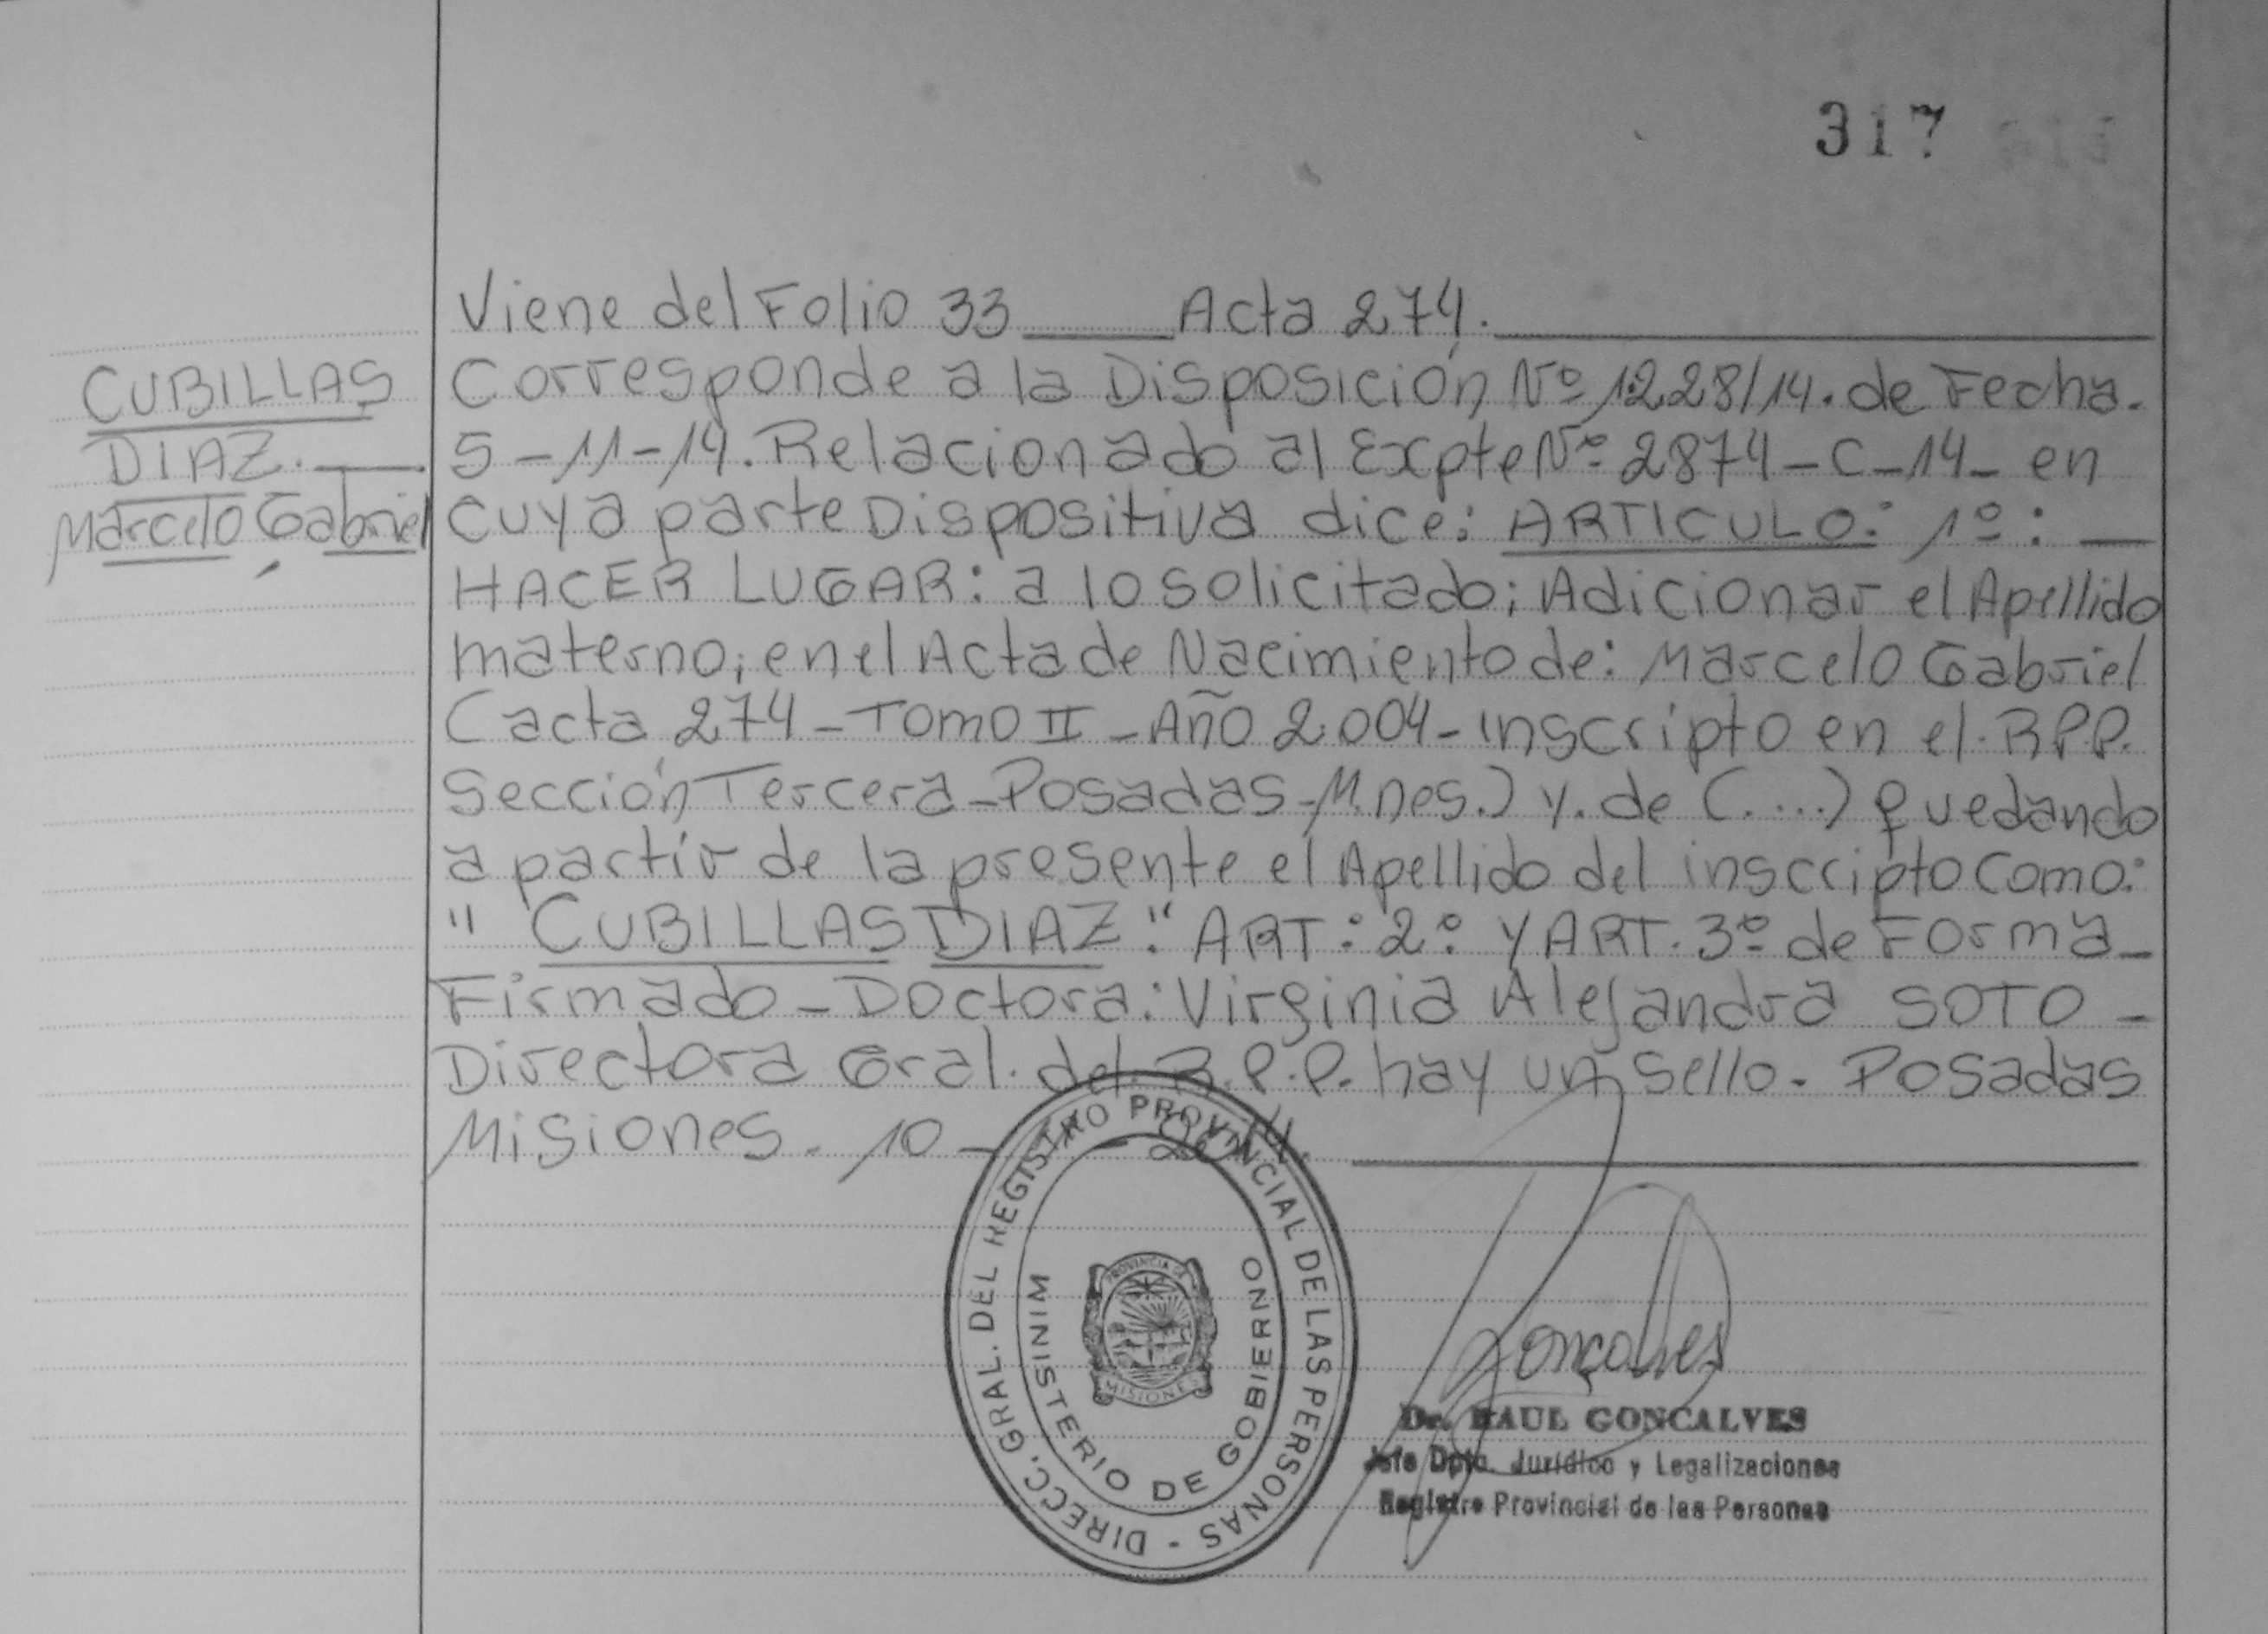 317
CUBILLAS
DIAZ.
Marcelo Gabriel
Viene del Folio 33 ____ Acta 274.
Corresponde a la Disposición Nº 1228/14. de Fecha.
5-11-14. Relacionado al Expte Nº 2874-C-14- en
cuya parte Dispositiva dice: ARTICULO: 1º: _
HACER LUGAR: a lo solicitado; Adicionar el Apellido
materno; en el Acta de Nacimiento de: Marcelo Gabriel
(acta 274 - Tomo II - Año 2.004 - inscripto en el. R.P.P.
Sección Tercera - Posadas - M.nes.) y. de (....) quedando
a partir de la presente el Apellido del inscripto Como:
" CUBILLAS DIAZ." ART: 2º: Y ART. 3º de Forma_
Firmado - Doctora: Virginia Alejandra SOTO -
Directora Gral. del. R.P.P. hay un sello. Posadas
Misiones. 10 -
DIRECC. GRAL. DEL REGISTRO PROVINCIAL DE LAS PERSONAS -
MINISTERIO DE GOBIERNO
PROVINCIA DE
MISIONES
Goncalves
Dr. RAUL GONCALVES
Jefe Dpto. Jurídico y Legalizaciones
Registro Provincial de las Personas